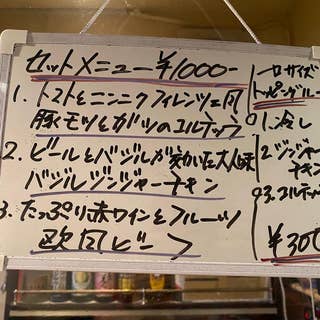 カットメニュー ¥1000-
1. トマトとニンニクフィレンツェ風
豚モツとガツのコルテッゥ
2. ビールとバジルが効いた大人味
バジルジンジャーチキン
3. たっぷり赤ワインとフルーツ
欧風ビーフ
一口サイズ
トッピングルー
1. 冷し
2 ジンジャー
チキン
3. コルテッゥ
¥300